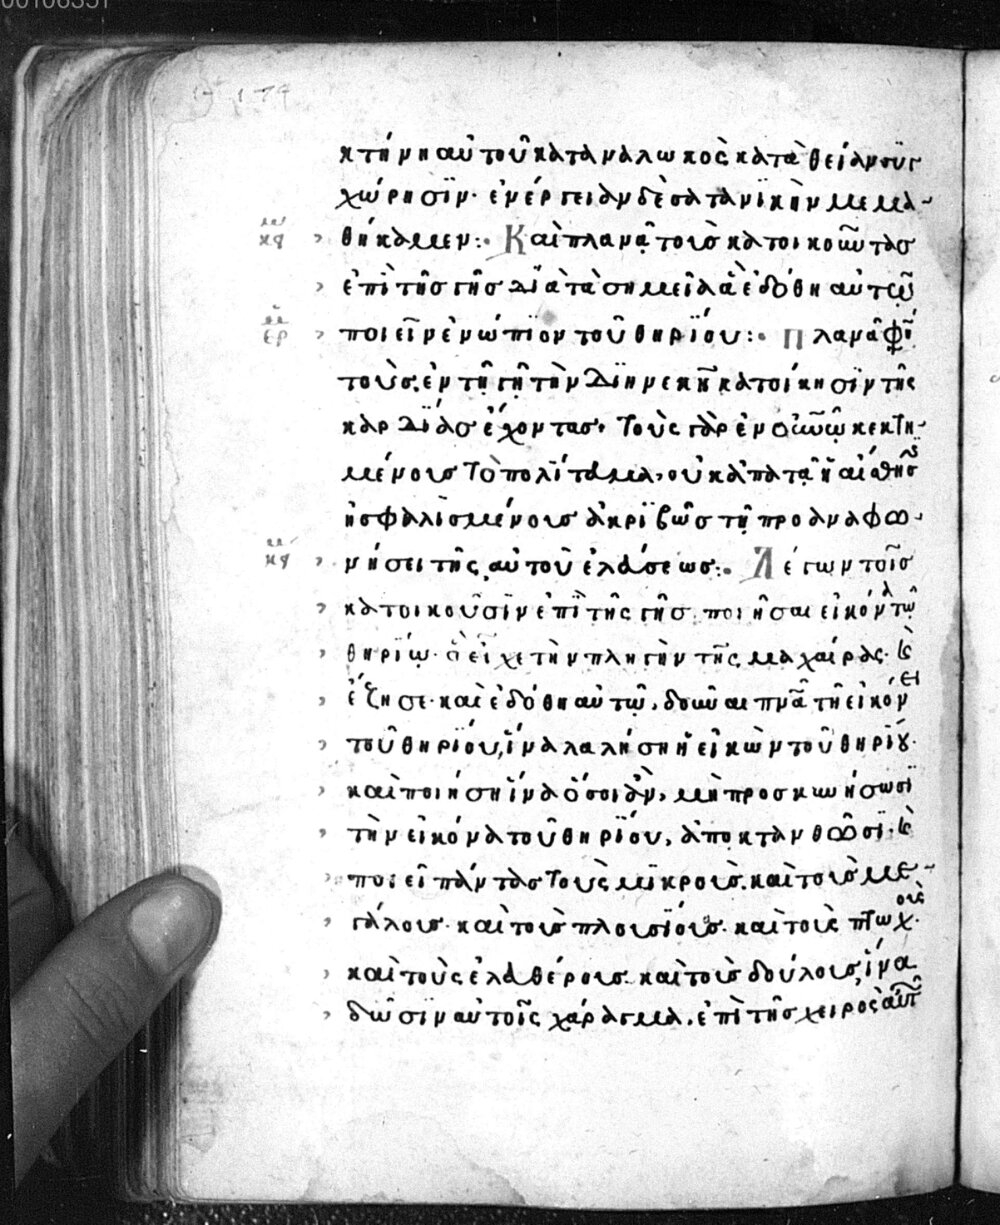 κτήνη αὐτοῦ καταναλωκὸς κατὰ θείαν συγ
χώρησϊν· ἐνέργειαν δὲ σατανϊκὴν μεμα
θήκαμεν:· Καὶ πλανᾷ τοὺσ κατοικοῦντασ
ἐπὶ τῆσ γῆσ διὰ τὰ σημεῖα ἃ ἐδόθη αὐτῶ
ποιεῖν ἐνώπϊον τοῦ θηρΐου:· Πλανᾶ φη
τοὺσ ἐν τῆ γῆ τὴν διηνεκῆ κατοίκησϊν τῆς
καρδΐασ ἔχοντασ· Τοὺς γὰρ ἐν οὐνῶ κεκτη
μένουσ τὸ πολίτευμα, οὐκ ἀπατᾶ ἡ αἴσθησ
ἠσφαλϊσμένουσ ἀκριβῶσ τῆ προαναφω
νήσει τῆς αὐτοῦ ἐλεύσεωσ:· Λέγων τοῖσ
κατοικοῦσϊν ἐπὶ τῆς γῆσ ποιῆσαι εἰκόνα τῶ
θηρίω· ὃ εἶχε τὴν πληγὴν τῆς μαχαίρας· κ
ἔζησε· καὶ ἐδόθη αὐτῶ, δοῦναι πνα τῆ εἰκόνει
τοῦ θηρΐου, ἵνα λαλήση ἡ εἰκὼν τοῦ θηρΐου·
καὶ ποιήση ἵνα ὅσοι ἂν, μὴ προσκυνήσωσϊ
τὴν εἰκόνα τοῦ θηρΐου, ἀποκτανθῶσϊ· κ
ποιεῖ πάντασ Τοὺς μϊκροὺσ, καὶ τοὺσ με
γάλουσ· καὶ τοὺσ πλουσΐουσ· καὶ τοὺς πτωχοὺς·
καὶ τοὺς ἐλευθέρουσ· καὶ τοὺσ δούλουσ, ἵνα
δώσϊν αὐτοῖς χάραγμα, ἐπὶ τῆσ χειρὸς αὐτ